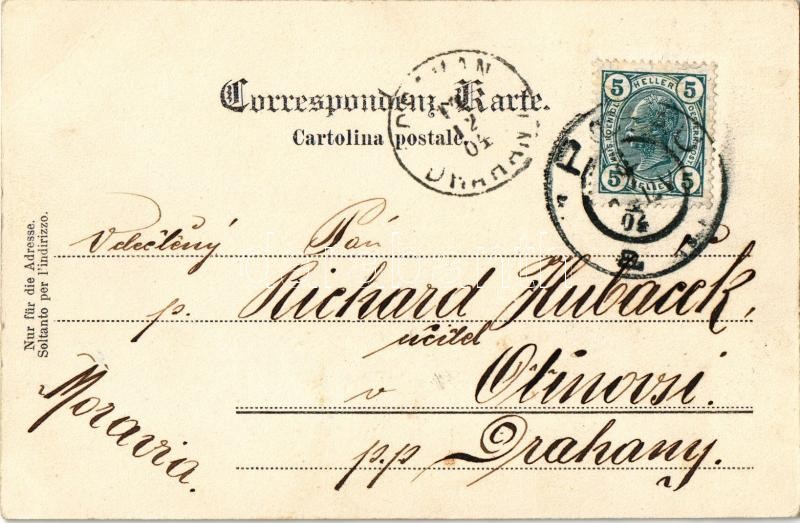 Correspondenz-Karte.
Cartolina postale.
DRAHAN
12
04
DRAHANY
5 HELLER 5
5 HELLER 5
04
Nur für die Adresse.
Soltanto per l'indirizzo.
Velectěný Pán
p. Richard Hubacek,
učitel
v Otinovsi.
Moravia.
p.p Drahany.